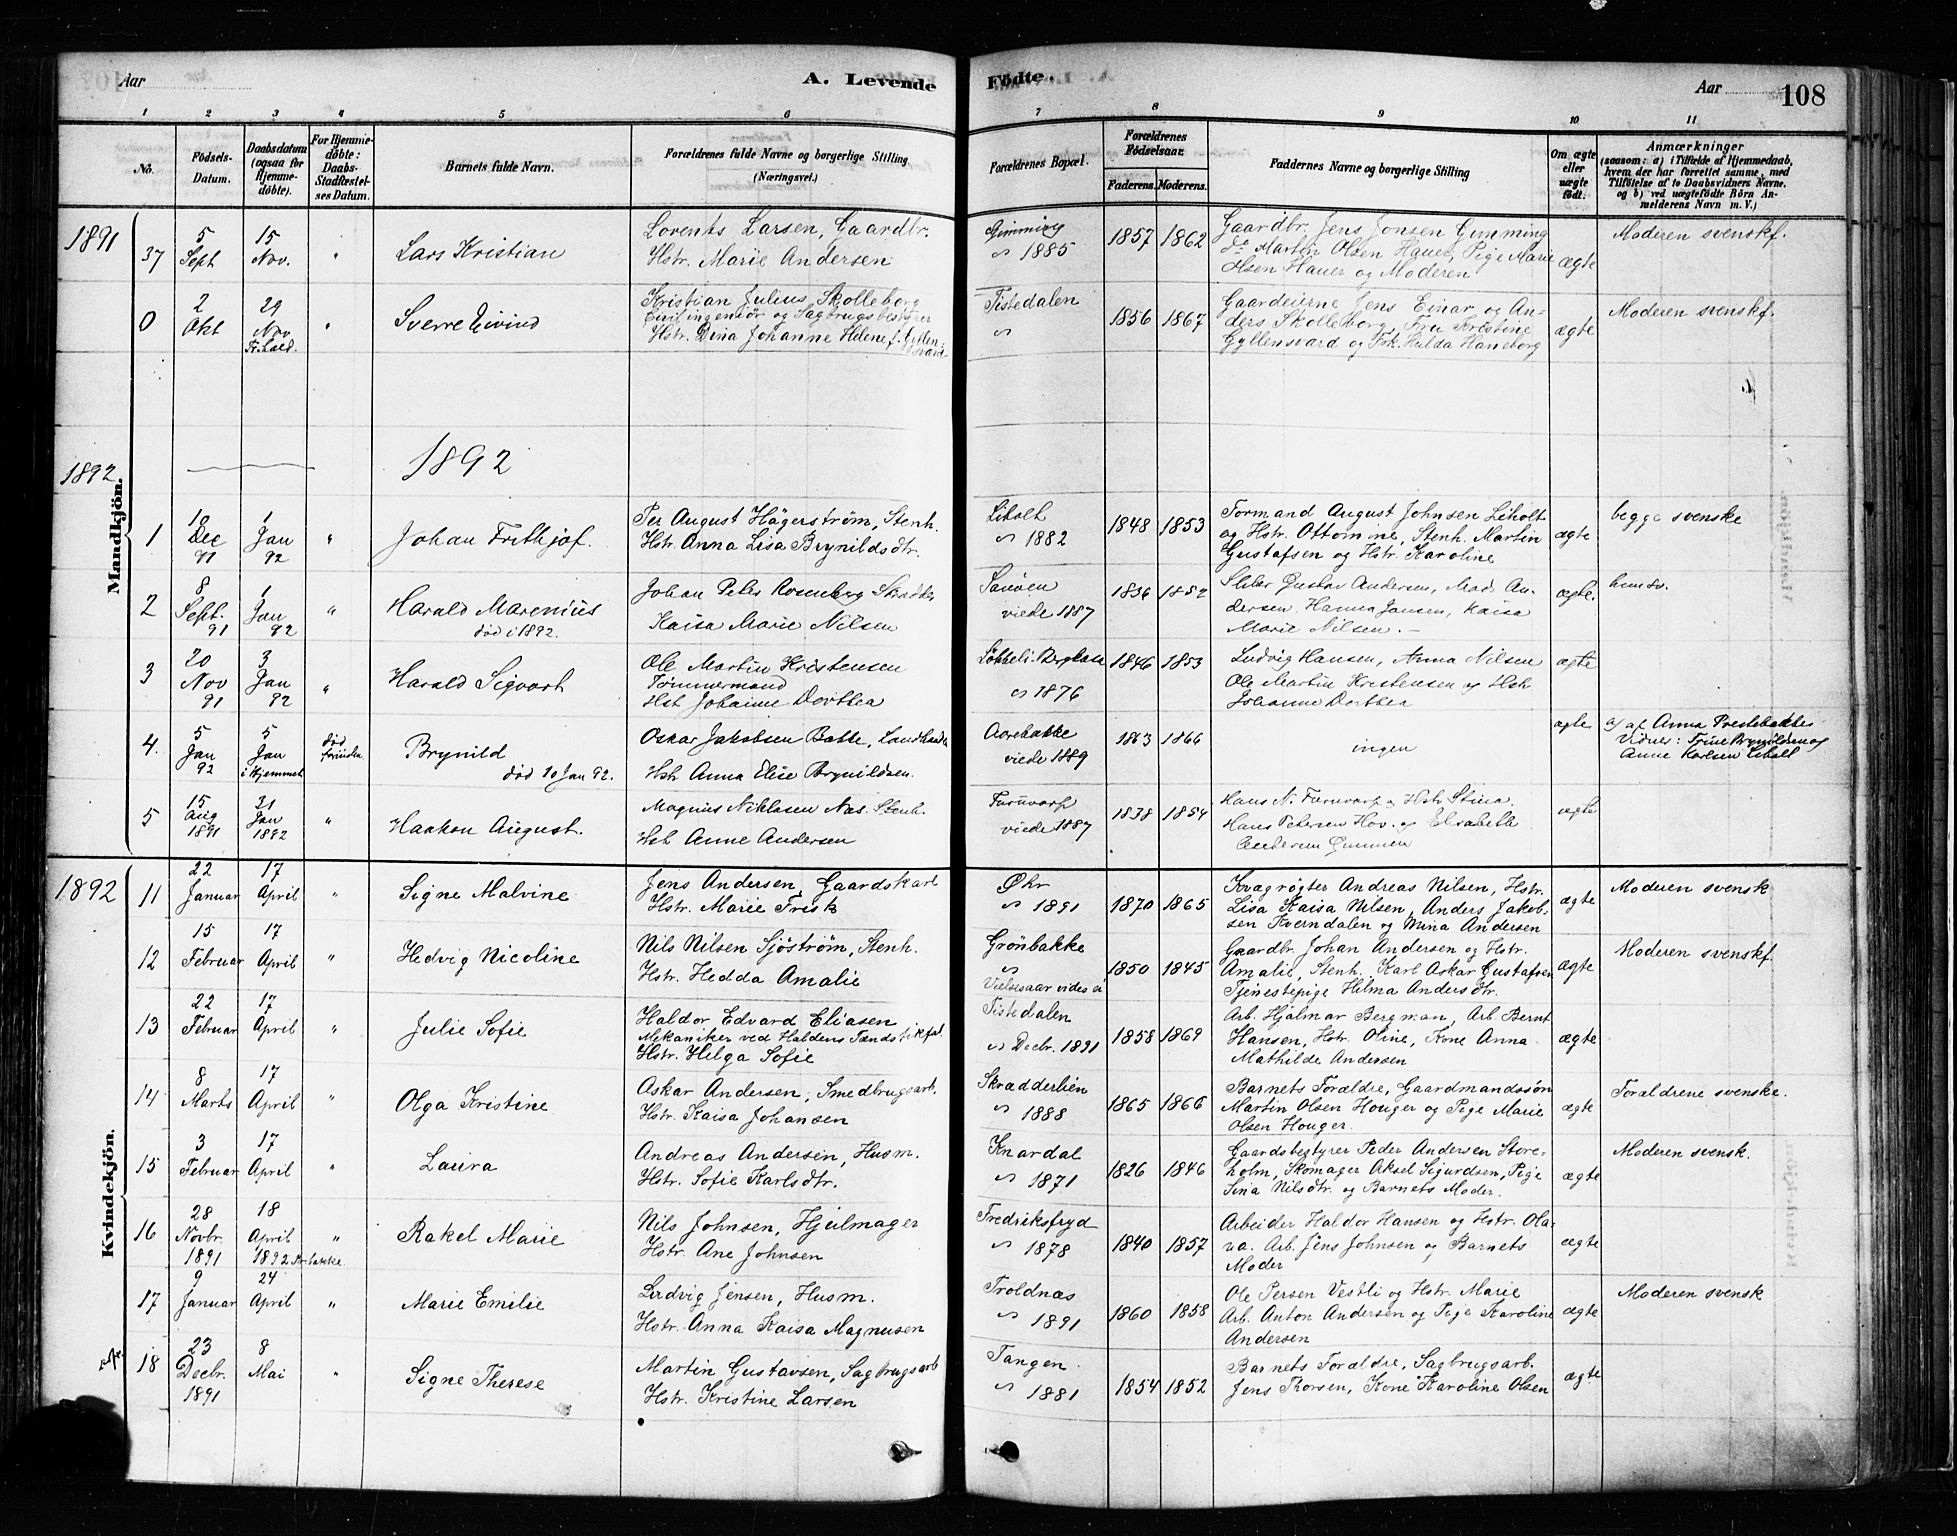 Aar
A. Levende
Fødte.
Aar
108
1 2 3 4 5 6 7 8 9 10 11
No.
Födsels-
Datum.
Daabsdatum
(ogsaa for
Hjemme-
döbte).
For Hjemme-
döbte:
Daabs-
Stadfæstel-
ses Datum.
Barnets fulde Navn.
Forældrenes fulde Navne og borgerlige Stilling
(Næringsvei.)
Forældrenes Bopæl.
Forældrenes
Födselsaar.
Faderens. Moderens.
Faddernes Navne og borgerlige Stilling
Om ægte
eller
uægte
födt.
Anmærkninger
(saasom: a) i Tilfælde af Hjemmedaab,
hvem der har forrettet samme, med
Tilföielse af to Daabsvidners Navne.
og b) ved uægtefödte Börn An-
melderens Navn m. V.)
Mandkjön.
1891
37
5
Sept
15
Nov.
"
Lars Kristian
Lorents Larsen, Gaardbr.
Hstr. Marie Andersen
Gimming
∽ 1885
1857 1862
Gaardbr. Jens Jonsen Gimming
do Martin Olsen Hauer, Pige Marie
Olsen Hauer og Moderen
ægte
Moderen svenskf.
0
2
Okt
29
Nov
Fr.hald.
"
Sverre Eivind
Kristian Julius Skolleborg
Civilingeniör og Sagbrugsbestyrer
Hstr. Dina Johanne Helene f. Gyllen-
svard
Tistedalen
∽
1856 1867
Gaardeierne Jens Einar og An-
ders Skolleborg, Fru Kristine
Gyllensvard og Frk. Hulda Haneborg
ægte
Moderen svenskf.
1892
1892
1
18
Dec
91
1
Jan
92
"
Johan Frithjof.
Per August Hägerström, Stenh.
Hstr. Anna Lisa Brynildsdtr.
Liholt
∽ 1882
1848 1853
Formand August Johnsen Liholt
og Hstr. Ottomine, Stenh. Martin
Gustafsen og Hstr. Karoline
ægte
begge svenske
2
8
Sept.
91
1
Jan
92
"
Harald Marenius
død i 1892.
Johan Peter Rosenberg Skrædder
Kaisa Marie Nilsen
Sanöen
viede 1887
1836 1852
Sleber Gustav Andersen, Mad. An-
dersen, Hanna Jansen, Kaisa
Marie Nilsen.
ægte.
hun sv.
3
20
Nov
91
3
Jan
92
"
Harald Sigvart
Ole Martin Kristensen
Tømmermand
Hst Johanne Dorthea
∽ 1876
1846 1853
Ludvig Hansen, Anna Nilsen
Ole Martin Kristensen og Hst
Johanne Dorthea
ægte
4.
5
Jan
92
5
Jan
i Hjemmet
død
forinden
Brynild
død 10 Jan 92.
Oskar Jakobsen Bakke, Landhandler
Hst Anna Elise Brynildsen.
Aorebakke
viede 1889
1863 1866
ingen
ægte
a) af Anna Prestebakke
Vidner: Trine Brynildsen og
Anne Karlsen Liholt
5
15
Aug
1891
31
Jan
1892
"
Haakon August.
Magnus Niklasen Nas. Stenh.
Hst Anne Andersen
Furuvarp
viede 1887
1838 1854
Hans N. Furuvarp og Hstr Stina.
Hans Petersen Hov. og Elsabeth
Andersen Gimmen
ægte
Kvindekjön.
1892
11
22
Januar
17
April
"
Signe Malvine
Jens Andersen, Gaardskarl
Hstr. Marie Frisk
Öhr
∽ 1891
1870 1865
Kvægrögter Andreas Nilsen, Hstr.
Lisa Kaisa Nilsen, Anders Jakob-
sen Kverndalen og Mina Andersen
ægte
Moderen svensk
12
15
Februar
17
April
"
Hedvig Nicoline
Nils Nilsen Sjöström, Stenh.
Hstr. Hedda Amalie
Grönbakke
∽
Vielsesaar vides ei
1850 1845
Gaardbr. Johan Andersen og Hstr.
Amalie, Stenh. Karl Oskar Gustafsen
Tjenestepige Hilma Andersdtr.
ægte
Moderen svenskf.
13
22
Februar
17
April
"
Julie Sofie
Haldor Edvard Eliasen
Mekaniker ved Haldens Tændstikfab.
Hstr. Helga Sofie
Tistedalen
∽ Decbr. 1891
1858 1869
Arb. Hjalmar Bergman, Arb. Bernt
Hansen, Hstr. Oline, Kone Anna
Mathilde Andersen
ægte
14
8
Marts
17
April
"
Olga Kristine
Oskar Andersen, Smedbrugsarb.
Hstr. Kaisa Johansen
Skrædderlien
∽ 1888
1865 1866
Barnets Forældre, Gaardmandssön
Martin Olsen Houger og Pige Marie
Olsen Houger.
ægte
Forældrene svenske.
15
3
Februar
17
April
"
Laura
Andreas Andersen, Husm.
Hstr. Sofie Karlsdtr.
Knardal
∽ 1871
1826 1846
Gaardsbestyrer Peder Andersen Store-
holm, Skomager Aksel Sigurdsen, Pige
Sina Nilsdtr. og Barnets Moder.
ægte
Moderen svensk.
16
28
Novbr.
1891
18
April
1892
"
Rakel Marie
Nils Johnsen, Hjulmager
Hstr. Ane Johnsen
Fredriksfryd
∽ 1878
1840 1857
Arbeider Haldor Hansen og Hstr. Ola-
va. Arb. Jens Johnsen og Barnets
Moder
ægte
17
9
Januar
24
April
"
Marie Emilie
Ludvig Jensen, Husm.
Hstr. Anna Kaisa Magnusen
Troldnæs
∽ 1891
1860 1858
Ole Persen Vestli og Hstr. Marie
Arb. Anton Andersen og Pige Karoline
Andersen
ægte
Moderen svensk
18
23
Decbr.
1891
8
Mai
"
Signe Therese
Martin Gustavsen, Sagbrugsarb
Hstr. Kristine Larsen
Tangen
∽ 1881
1854 1852
Barnets Forældre, Sagbrugsarb.
Jens Thorsen, Kone Karoline Olsen
ægte